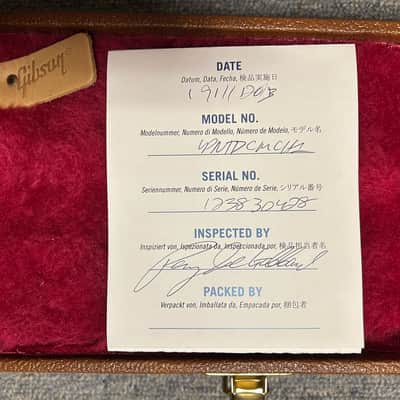 Gibson
DATE
Datum, Data, Fecha, 検品実施日
MODEL NO.
Modelnummer, Numero di Modello, Número de Modelo, モデル名
SERIAL NO.
Seriennummer, Numero di Serie, Número de Serie, シリアル番号
123830428
INSPECTED BY
Inspiziert von, Ispezionata da, Inspeccionada por, 検品担当者名
PACKED BY
Verpackt von, Imballata da, Empacada por, 梱包者